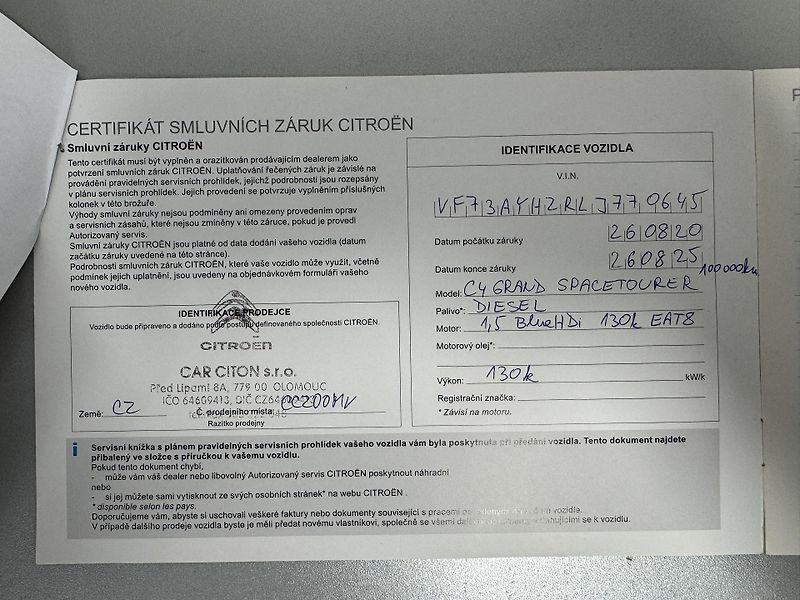 CERTIFIKÁT SMLUVNÍCH ZÁRUK CITROËN
Smluvní záruky CITROËN
Tento certifikát musí být vyplněn a orazítkován prodávajícím dealerem jako
potvrzení smluvních záruk CITROËN. Uplatňování řečených záruk je závislé na
provádění pravidelných servisních prohlídek, jejichž podrobnosti jsou rozepsány
v plánu servisních prohlídek. Jejich provedení se potvrzuje vyplněním příslušných
kolonek v této brožuře.
Výhody smluvní záruky nejsou podmíněny ani omezeny provedením oprav
a servisních zásahů, které nejsou zmíněny v této záruce, pokud je provedl
Autorizovaný servis.
Smluvní záruky CITROËN jsou platné od data dodání vašeho vozidla (datum
začátku záruky uvedené na této stránce).
Podrobnosti smluvních záruk CITROËN, které vaše vozidlo může využít, včetně
podmínek jejich uplatnění, jsou uvedeny na objednávkovém formuláři vašeho
nového vozidla.
IDENTIFIKACE PRODEJCE
Vozidlo bude připraveno a dodáno podle postupu definovaného společností CITROËN.
CITROËN
CAR CITON s.r.o.
Před Lipami 8A, 779 00 OLOMOUC
IČO 64609413, DIČ CZ64
Země: CZ Č. prodejního místa:
Razítko prodejny
IDENTIFIKACE VOZIDLA
V.I.N.
VF73AYHZRLJ770645
Datum počátku záruky 260820
Datum konce záruky 260825 100000km
Model: C4 GRAND SPACETOURER
Palivo*: DIESEL
Motor: 1,5 BlueHDi 130k EAT8
Motorový olej*:
Výkon: 130k kW/k
Registrační značka:
* Závisí na motoru.
i
Servisní knížka s plánem pravidelných servisních prohlídek vašeho vozidla vám byla poskytnuta při předání vozidla. Tento dokument najdete
přibalený ve složce s příručkou k vašemu vozidlu.
Pokud tento dokument chybí,
- může vám váš dealer nebo libovolný Autorizovaný servis CITROËN poskytnout náhradní
nebo
- si jej můžete sami vytisknout ze svých osobních stránek* na webu CITROËN .
* disponible selon les pays.
Doporučujeme vám, abyste si uschovali veškeré faktury nebo dokumenty související s pracemi vozidle.
V případě dalšího prodeje vozidla byste je měli předat novému vlastníkovi, společně se všemi vztahujícími se k vozidlu.